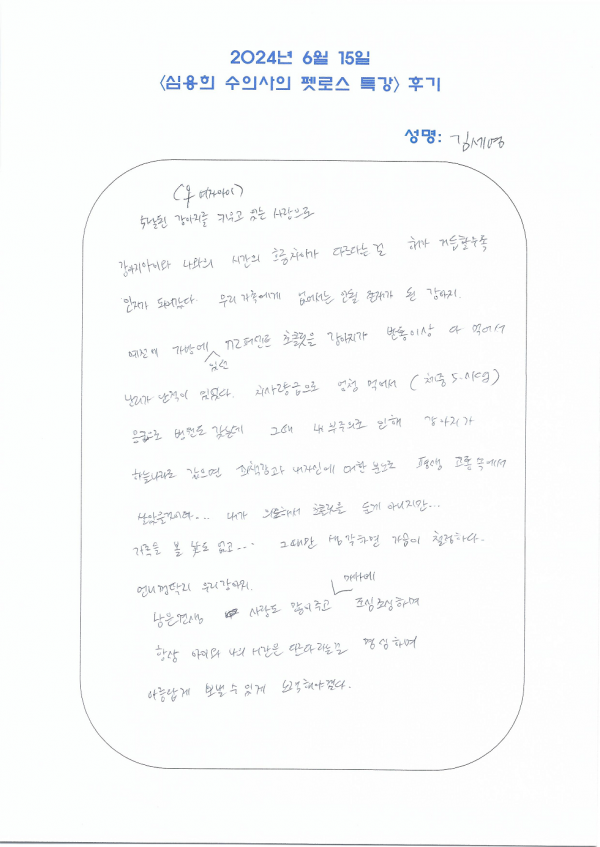 2024년 6월 15일
<심용희 수의사의 펫로스 특강> 후기
성명: 김세영
(우 여자아이)
강아지를 키우고 있는 사람으로
강아지아이와 나와의 시간의 흐름차이가 다르다는걸 해가 거듭할수록
인지가 되어간다. 우리 가족에게 없어서는 안될 존재가 된 강아지.
예전에 가방에 있던 72퍼센트 초콜릿을 강아지가 반통이상 다 먹어서
난리가 난적이 있었다. 치사량급으로 엄청 먹어서 (체중 5.1kg)
응급으로 병원도 갔는데 그때 내 부주의로 인해 강아지가
하늘나라로 갔으면 죄책감과 내자신에 대한 분노로 평생 고통 속에서
살았을것이다... 내가 의도해서 초콜릿을 둔게 아니지만...
가족들 볼 낯도 없고... 그때만 생각하면 가슴이 철렁하다.
언니껌딱지 우리강아지.
남은견생 사랑도 많이주고 매사에 조심조심하며
항상 아이와 나의 시간은 다르다는걸 명심하며
아름답게 보낼 수 있게 노력해야겠다.